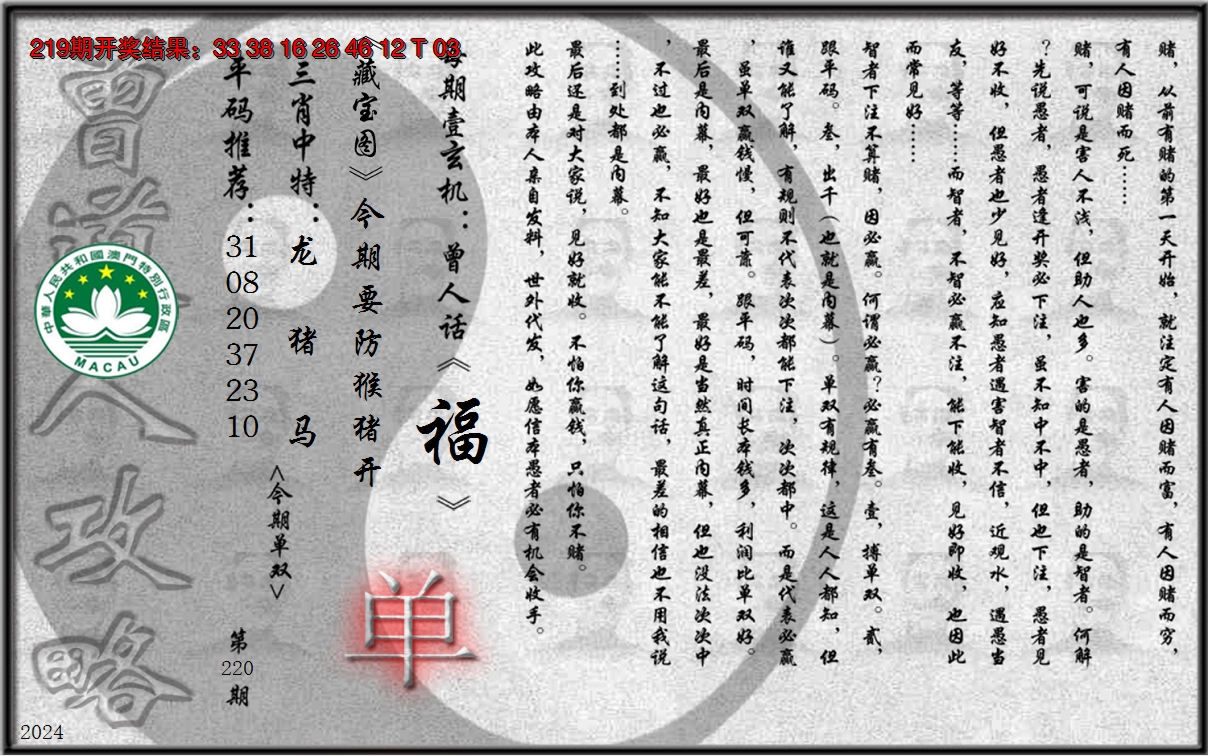 219期开奖结果：33 38 16 26 46 12 T 03
赌，从前有赌的第一天开始，就注定有人因赌而富，有人因赌而穷，
有人因赌而死……
赌，可说是害人不浅，但助人也多。害的是愚者，助的是智者。何解
？先说愚者，愚者逢开奖必下注，虽不知中不中，但也下注，愚者见
好不收，但愚者也少见好，应知愚者遇害智者不信，近观水，遇愚当
友，等等……而智者，不智必赢不注，能下能收，见好即收，也因此
而常见好……
智者下注不算赌，因必赢。何谓必赢？必赢有叁。壹，搏单双。贰，
跟平码。叁，出千（也就是内幕）。单双有规律，这是人人都知，但
谁又能了解，有规则不代表次次都能下注，次次都中。而是代表必赢
，虽单双赢钱慢，但可靠。跟平码，时间长本钱多，利润比单双好。
最后是内幕，最好也是最差，最好是当然真正内幕，但也没法次次中
，不过也必赢，不知大家能不能了解这句话，最差的相信也不用我说
……到处都是内幕。
最后还是对大家说，见好就收。不怕你赢钱，只怕你不赌。
此攻略由本人亲自发料，世外代发，如愿信本愚者必有机会收手。
每期壹玄机：曾人话《福》
《藏宝图》今期要防猴猪开
单
三肖中特：龙 猪 马
<今期单双>
平码推荐：
31
08
20
37
23
10
第
220
期
曾道人攻略
中華人民共和國澳門特別行政區
MACAU
2024